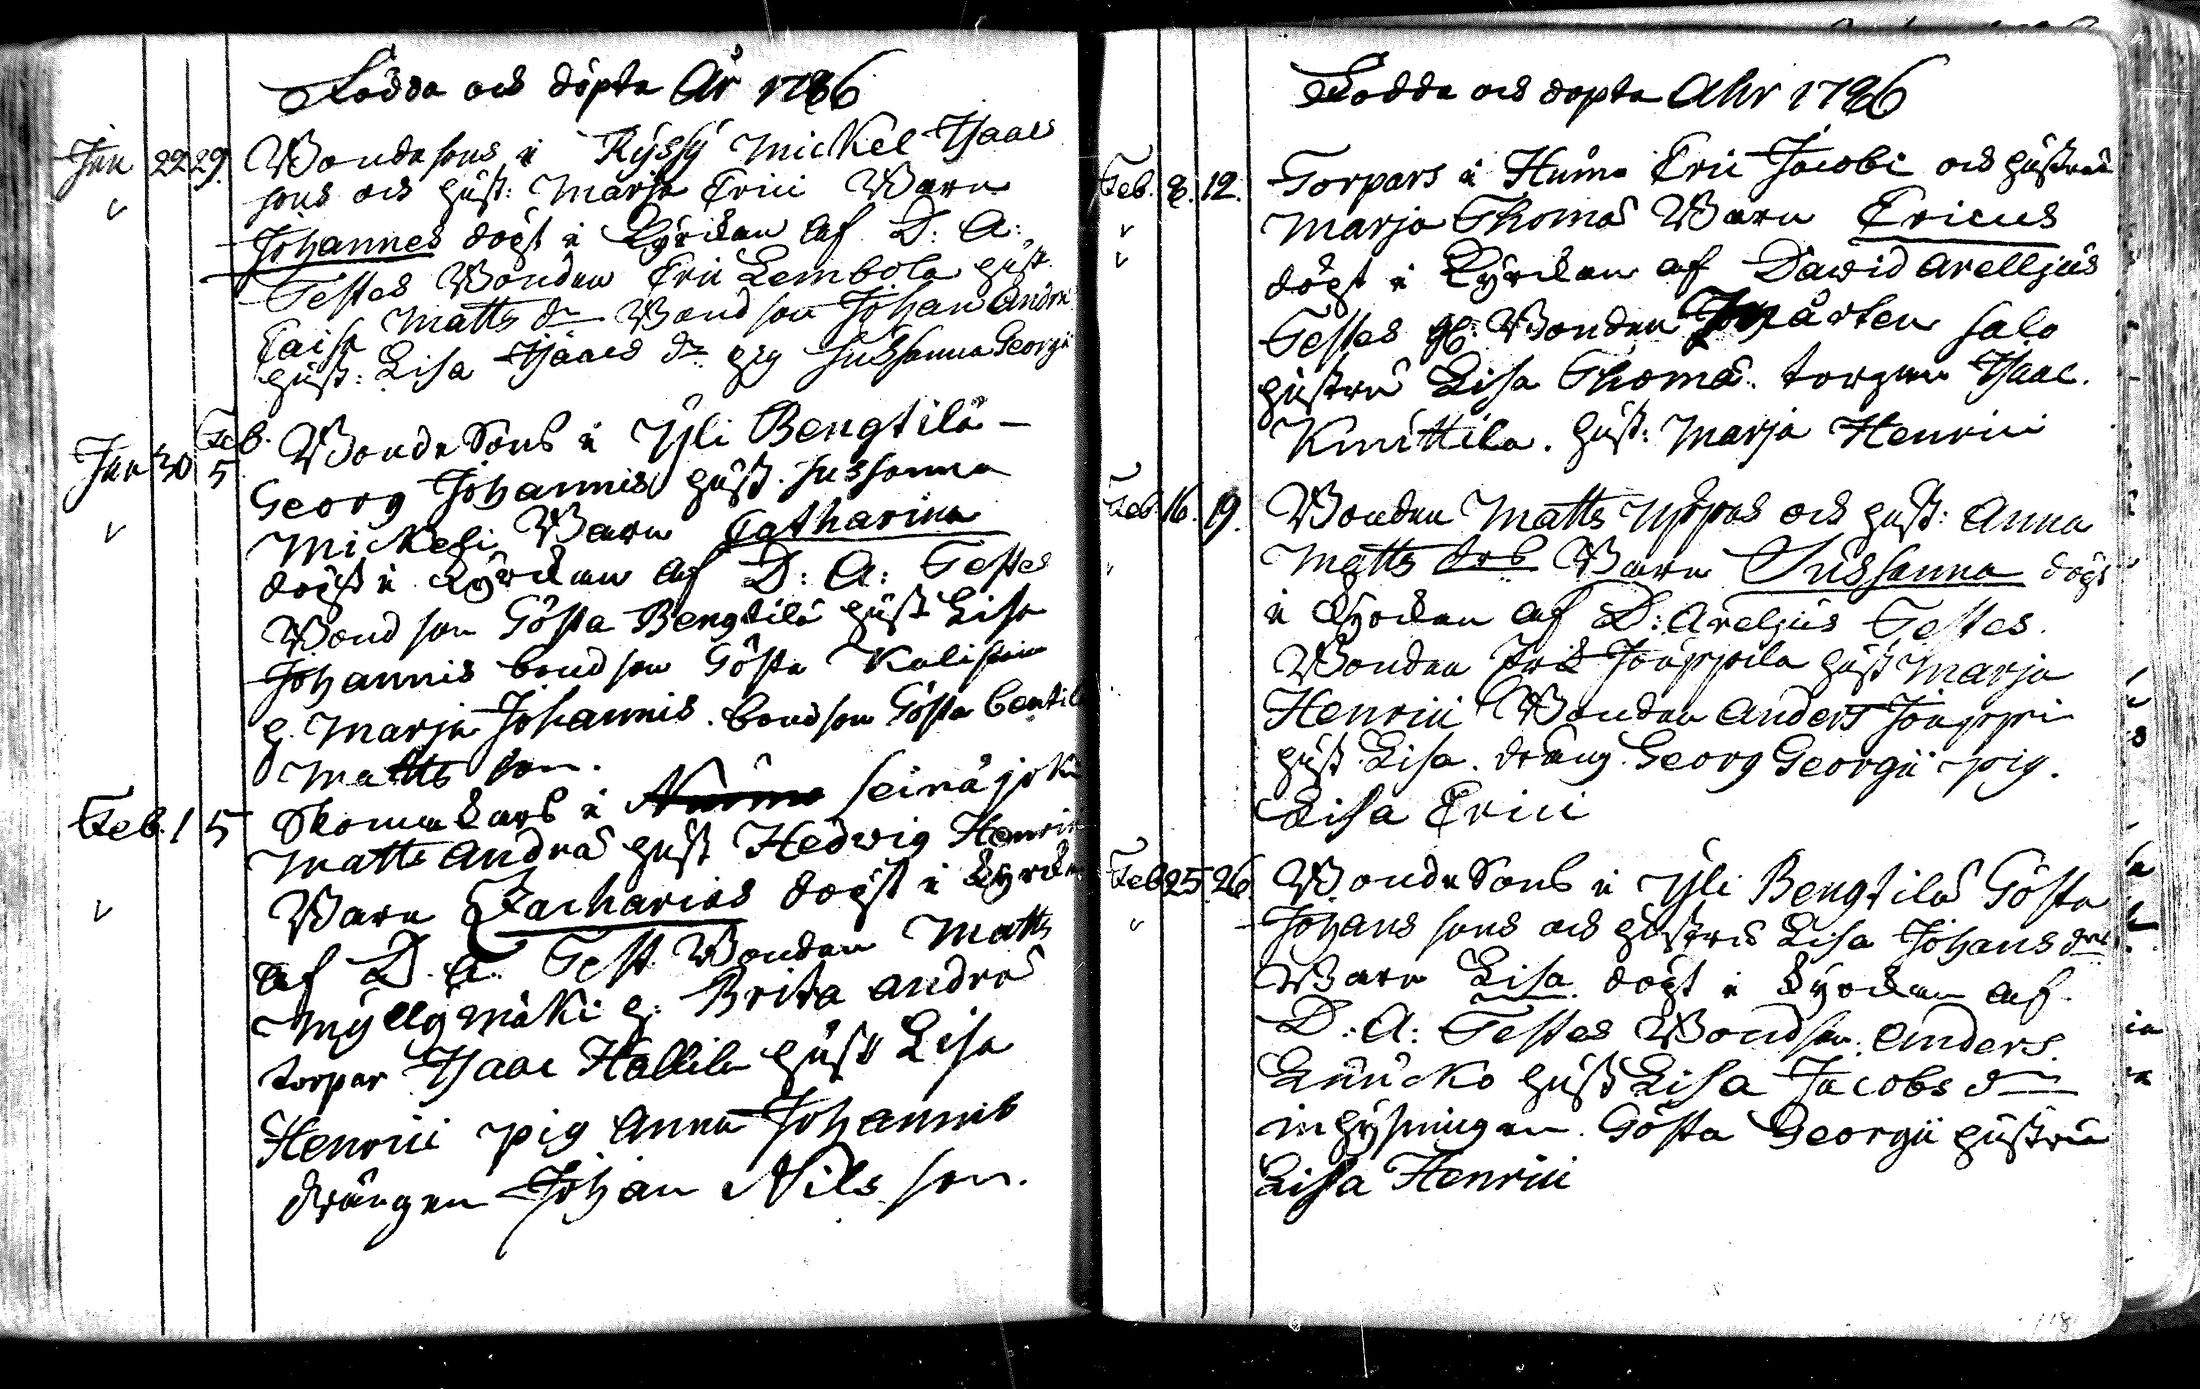 Födda och döpta År 1786
Jan 22 29. Bonde sons i Kyssÿ Mickel Isaacs
sons och hust: Marja Erici Barn
Johannes döpt i Kyrckan af D: A:
Testes Bonden Eric Lembola hust.
Caisa Matts dr Bond son Johan Andræ
hust: Lisa Isaacs dr pig Sussanna Georgii
Jan 30 Feb. 5 Bonde Sons i Yli Bengtilä
Georg Johannis hust. Sussanna
Mickeli Barn Catharina
döpt i Kyrckan af D: A: Testes
Bond son Gösta Bengtilä hust Lisa
Johannis bond son Gösta
h. Marja Johannis. bond son Gösta Bentil
Matts son.
Feb. 1 5 Skomakars i Seinäjoki
Matts Andræ hust Hedwig Henrici
Barn Zacharias döpt i Kyrckan
af D. A. Test. Bonden Matts
Myllymäki h: Brita Andræ
torpar Isaac Hallila hust Lisa
Henrici pig Anna Johannis
drängen Johan Nils son.
Födda och döpta Ahr 1786
Feb. 8. 12. Torpars i Eric Jacobi och hustrus
Marja Thomæ Barn Ericus
döpt i Kyrckan af Dawid Arelljus
Testes gl: Bonden Mårten Salo
hustru Lisa Thomæ. torparn Isaac.
Knuttila. hust: Marja Henrici
Feb. 16. 19. Bonden Matts Uppas och hust: Anna
Matts drs Barn Sussanna döpt
i Kyrckan af D: Areljus Testes.
Bonden Eric Jouppila hust Marja
Henrici Bonden Anders Jouppi
hust Lisa. dräng. Georg Georgii pig.
Lisa Erici
Feb 25. 26. Bonde Sons i Yli Bengtilä Gösta
Johans sons och hustrus Lisa Johans drs
Barn Lisa döpt i Kyrckan af.
D: A: Testes Bondson. Anders.
Luucko hust Lisa Jacobs dr
inhysningen. Gösta Georgii hustru
Lisa Henrici
118